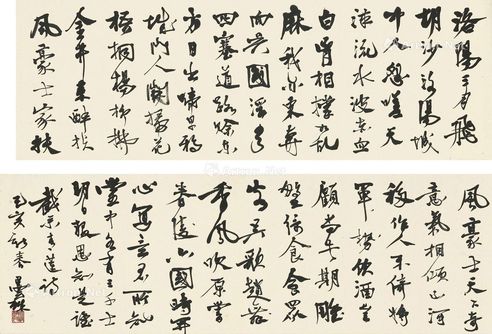 洛陽三月飛
胡沙洛陽城
中人怨嗟天
津流水波赤血
白骨相撐如亂
麻我亦東奔
向吳國浮雲
四塞道路賒東
方日出啼早鴉
城門人開掃落花
梧桐楊柳拂
金井來醉扶
風豪士家扶
風豪士天下奇
意氣相傾山可
移作人不倚將
軍勢飲酒豈
顧尚書期雕
盤綺食會眾
客吳歌趙舞
香風吹原嘗
春陵六國時開
心寫意君所知
堂中各有三千士
明日報恩知是誰
截錄青蓮詩